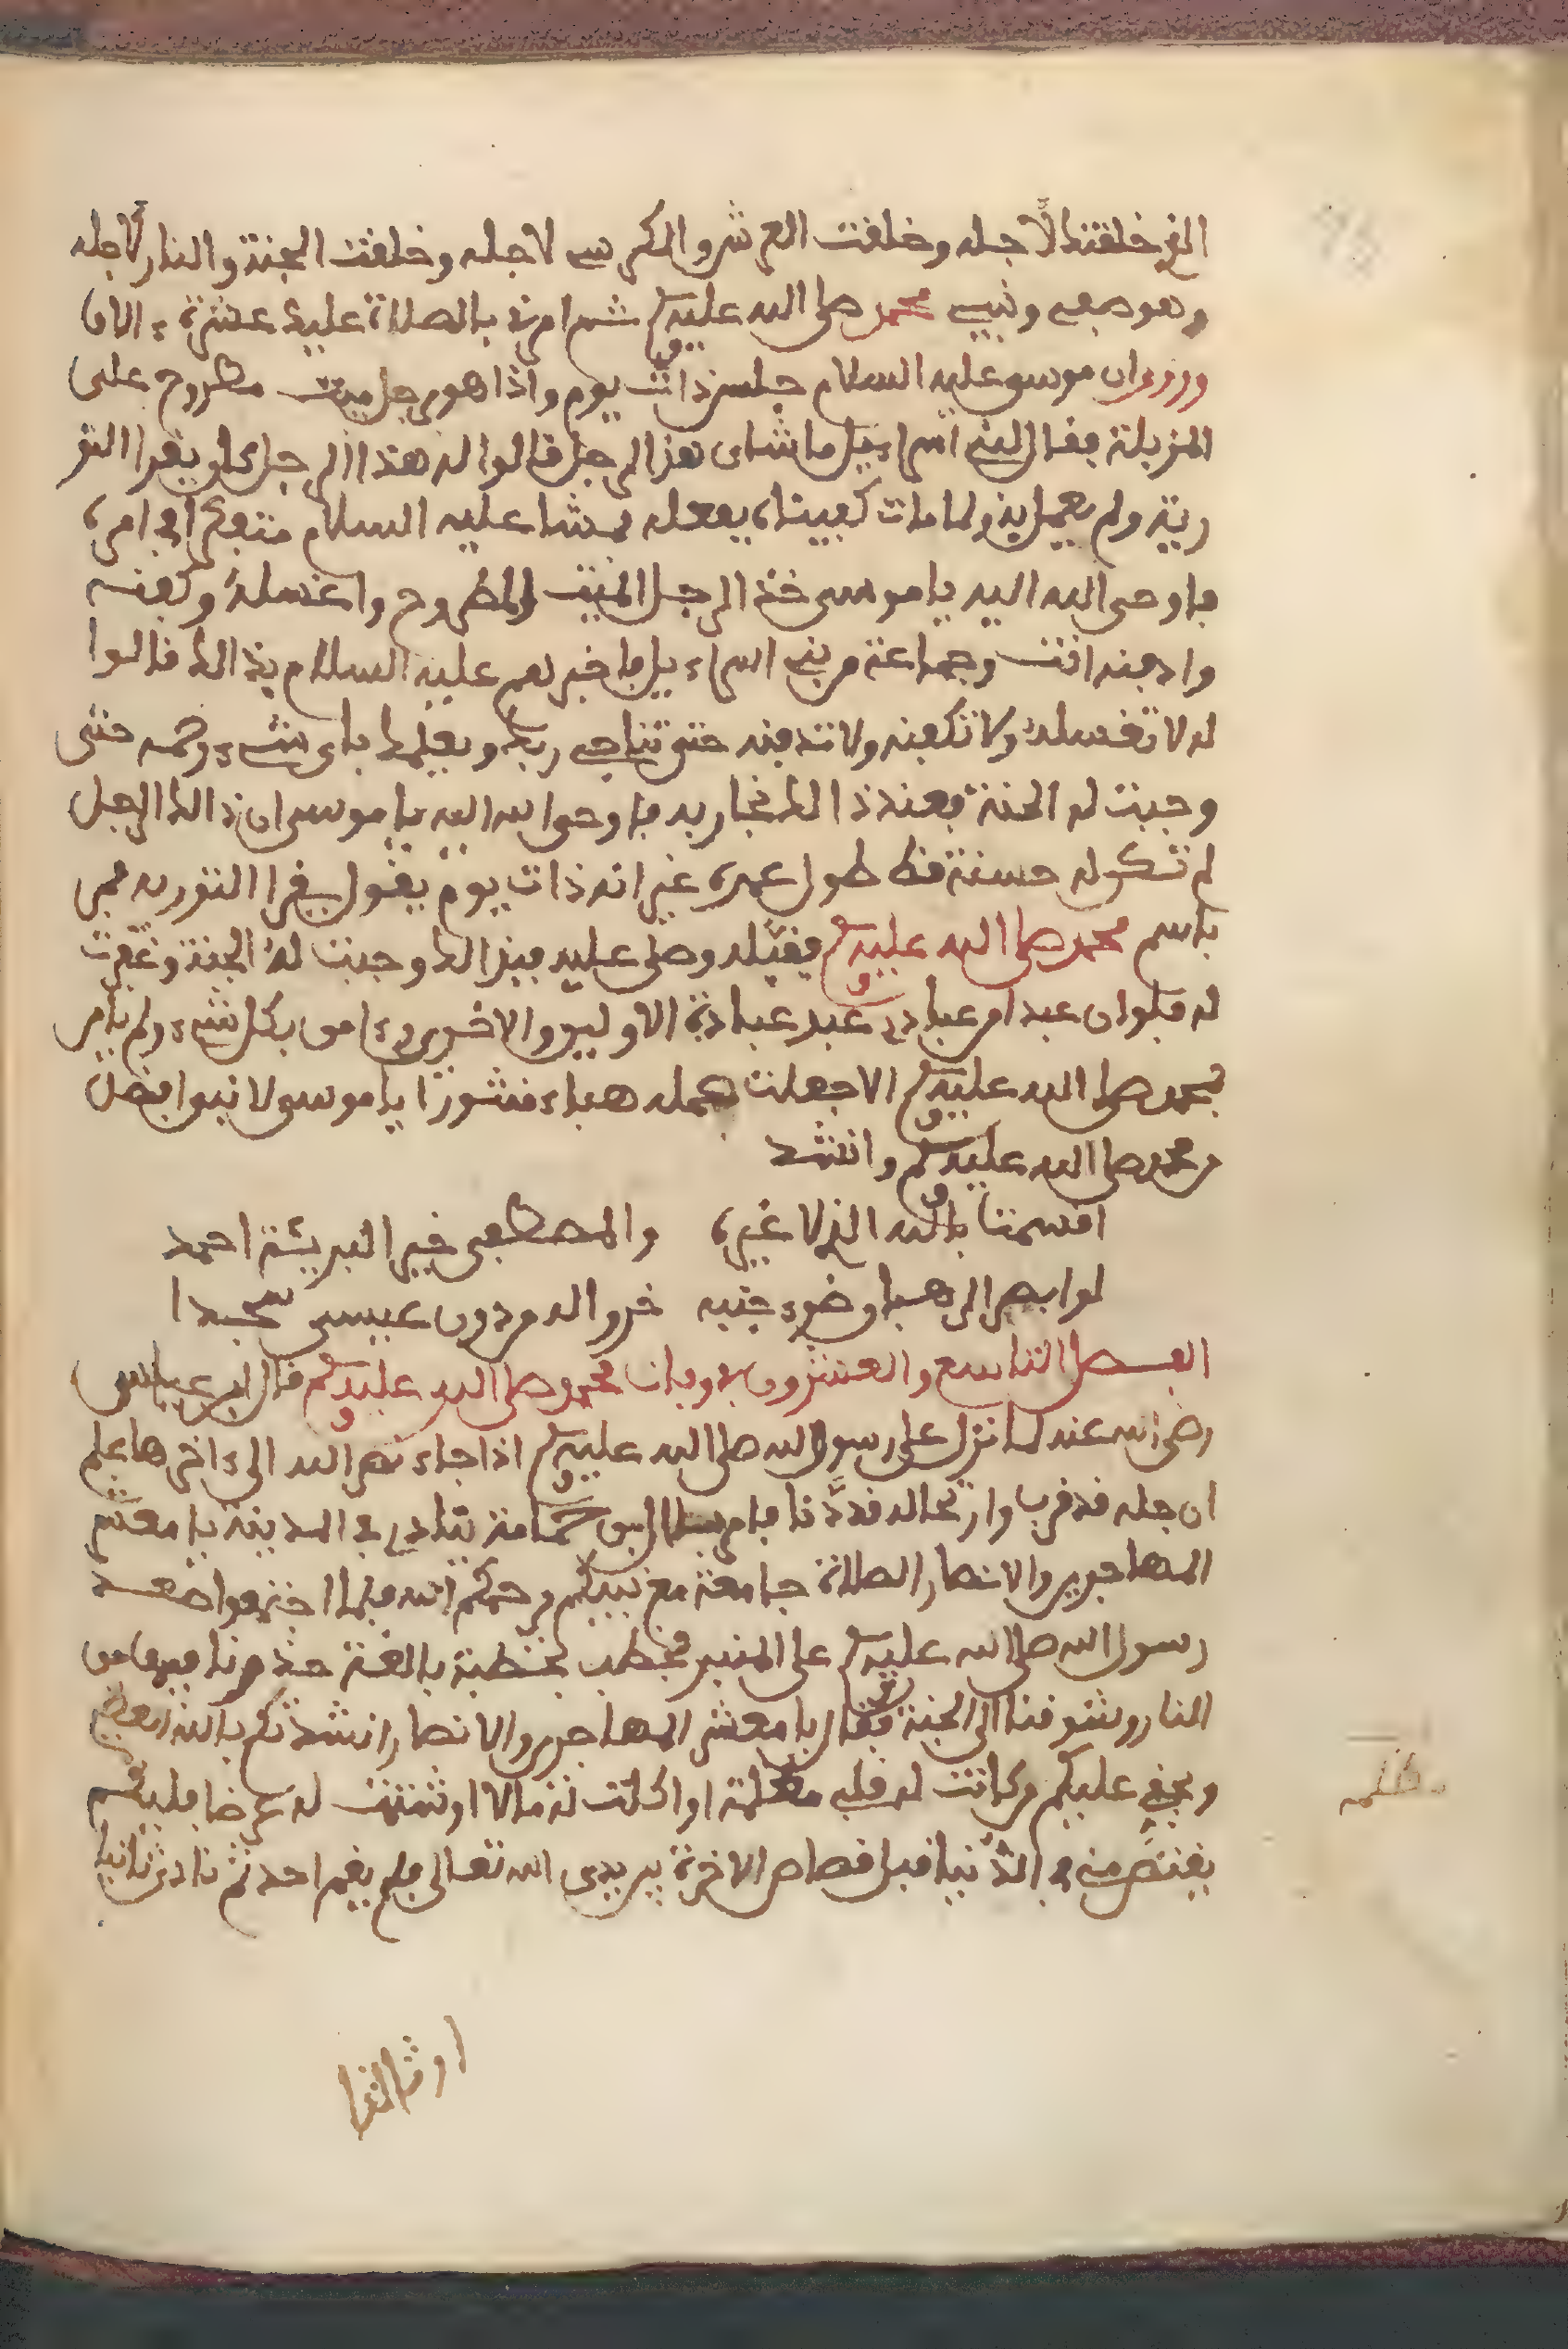 الذي خلقتك لأجله وخلقت العرش والكرسي لاجله وخلقت الجنة والنار لأجله
وهو صفي ونبيي محمد صلى الله عليه وسلم ثم امرني بالصلاة عليه عشرة ءالاف
وروي ان موسى عليه السلام جلس ذات يوم واذا هو برجل ميت مطروح على
المزبلة فقال لبني اسراءيل ما شان هذا الرجل قالوا له هذا الرجل كان يقرا التو
رية ولم يعمل بها ولما مات كفينا يفعله فمشا عليه السلام متفكرا في امره
فاوحى الله اليه يا موسى خذ الرجل الميت المطروح واغسله وكفنه
وادفنه انت وجماعة من بني اسراءيل فاخبرهم عليه السلام بذالك قالوا
له لا تغسله ولا تكفنه ولا تدفنه حتى تناجي ربك ويعلمك باي شيء رحمه حتى
وجبت له الجنة فعند ذالك نجا ربه فاوحى الله اليه يا موسى ان ذالك الرجل
لم تكن له حسنة قط طول عمره غير انه ذات يوم يقول يقرا التورية فمر
باسم محمد صلى الله عليه وسلم فقبله وصلى عليه فبذالك وجبت له الجنة وغفرت
له فلو ان عبدا من عبادي عبد عبادة الاولين والاخرين وءامن بكل شيء ولم يامن
بمحمد صلى الله عليه وسلم الا جعلت عمله هباء منثورا يا موسى لا نبي افضل
من محمد صلى الله عليه وسلم وانشد
اقسمنا بالله الذي لا غيره والمصطفى خير البريئة احمد
لو ابصر الى هبا وضوء جنبه خروا له من دون عيسى سجدا
الفصل التاسع والعشرون في وفات محمد صلى الله عليه وسلم قال ابن عباس
رضي الله عنه لما نزل على رسول الله صلى الله عليه وسلم اذا جاء نصر الله الى ءاخرها علم
ان جله قد قرب وارتحاله قد دنا فامر بلال بن حمامة ينادي في المدينة يا معشر
المهاجرين والانصار الصلاة جامعة مع نبيكم رحمكم الله فلما اجتمعوا صعد
رسول الله صلى الله عليه وسلم على المنبر فخطب بخطبة بالغة حذرنا فيها من
النار وشوقنا الى الجنة فقال يا معشر المهاجرين والانصار انشدتكم بالله العظيم
وبحقي عليكم من كانت له قبلي مظلمة او اكلت له مالا او شتمت له عرضا فليقم
يقتص مني في الدنيا قبل قصاص الاخرة بين يدي الله تعالى فلم يقم احد ثم نادى ثانيا
مظلمه
او ثالثا